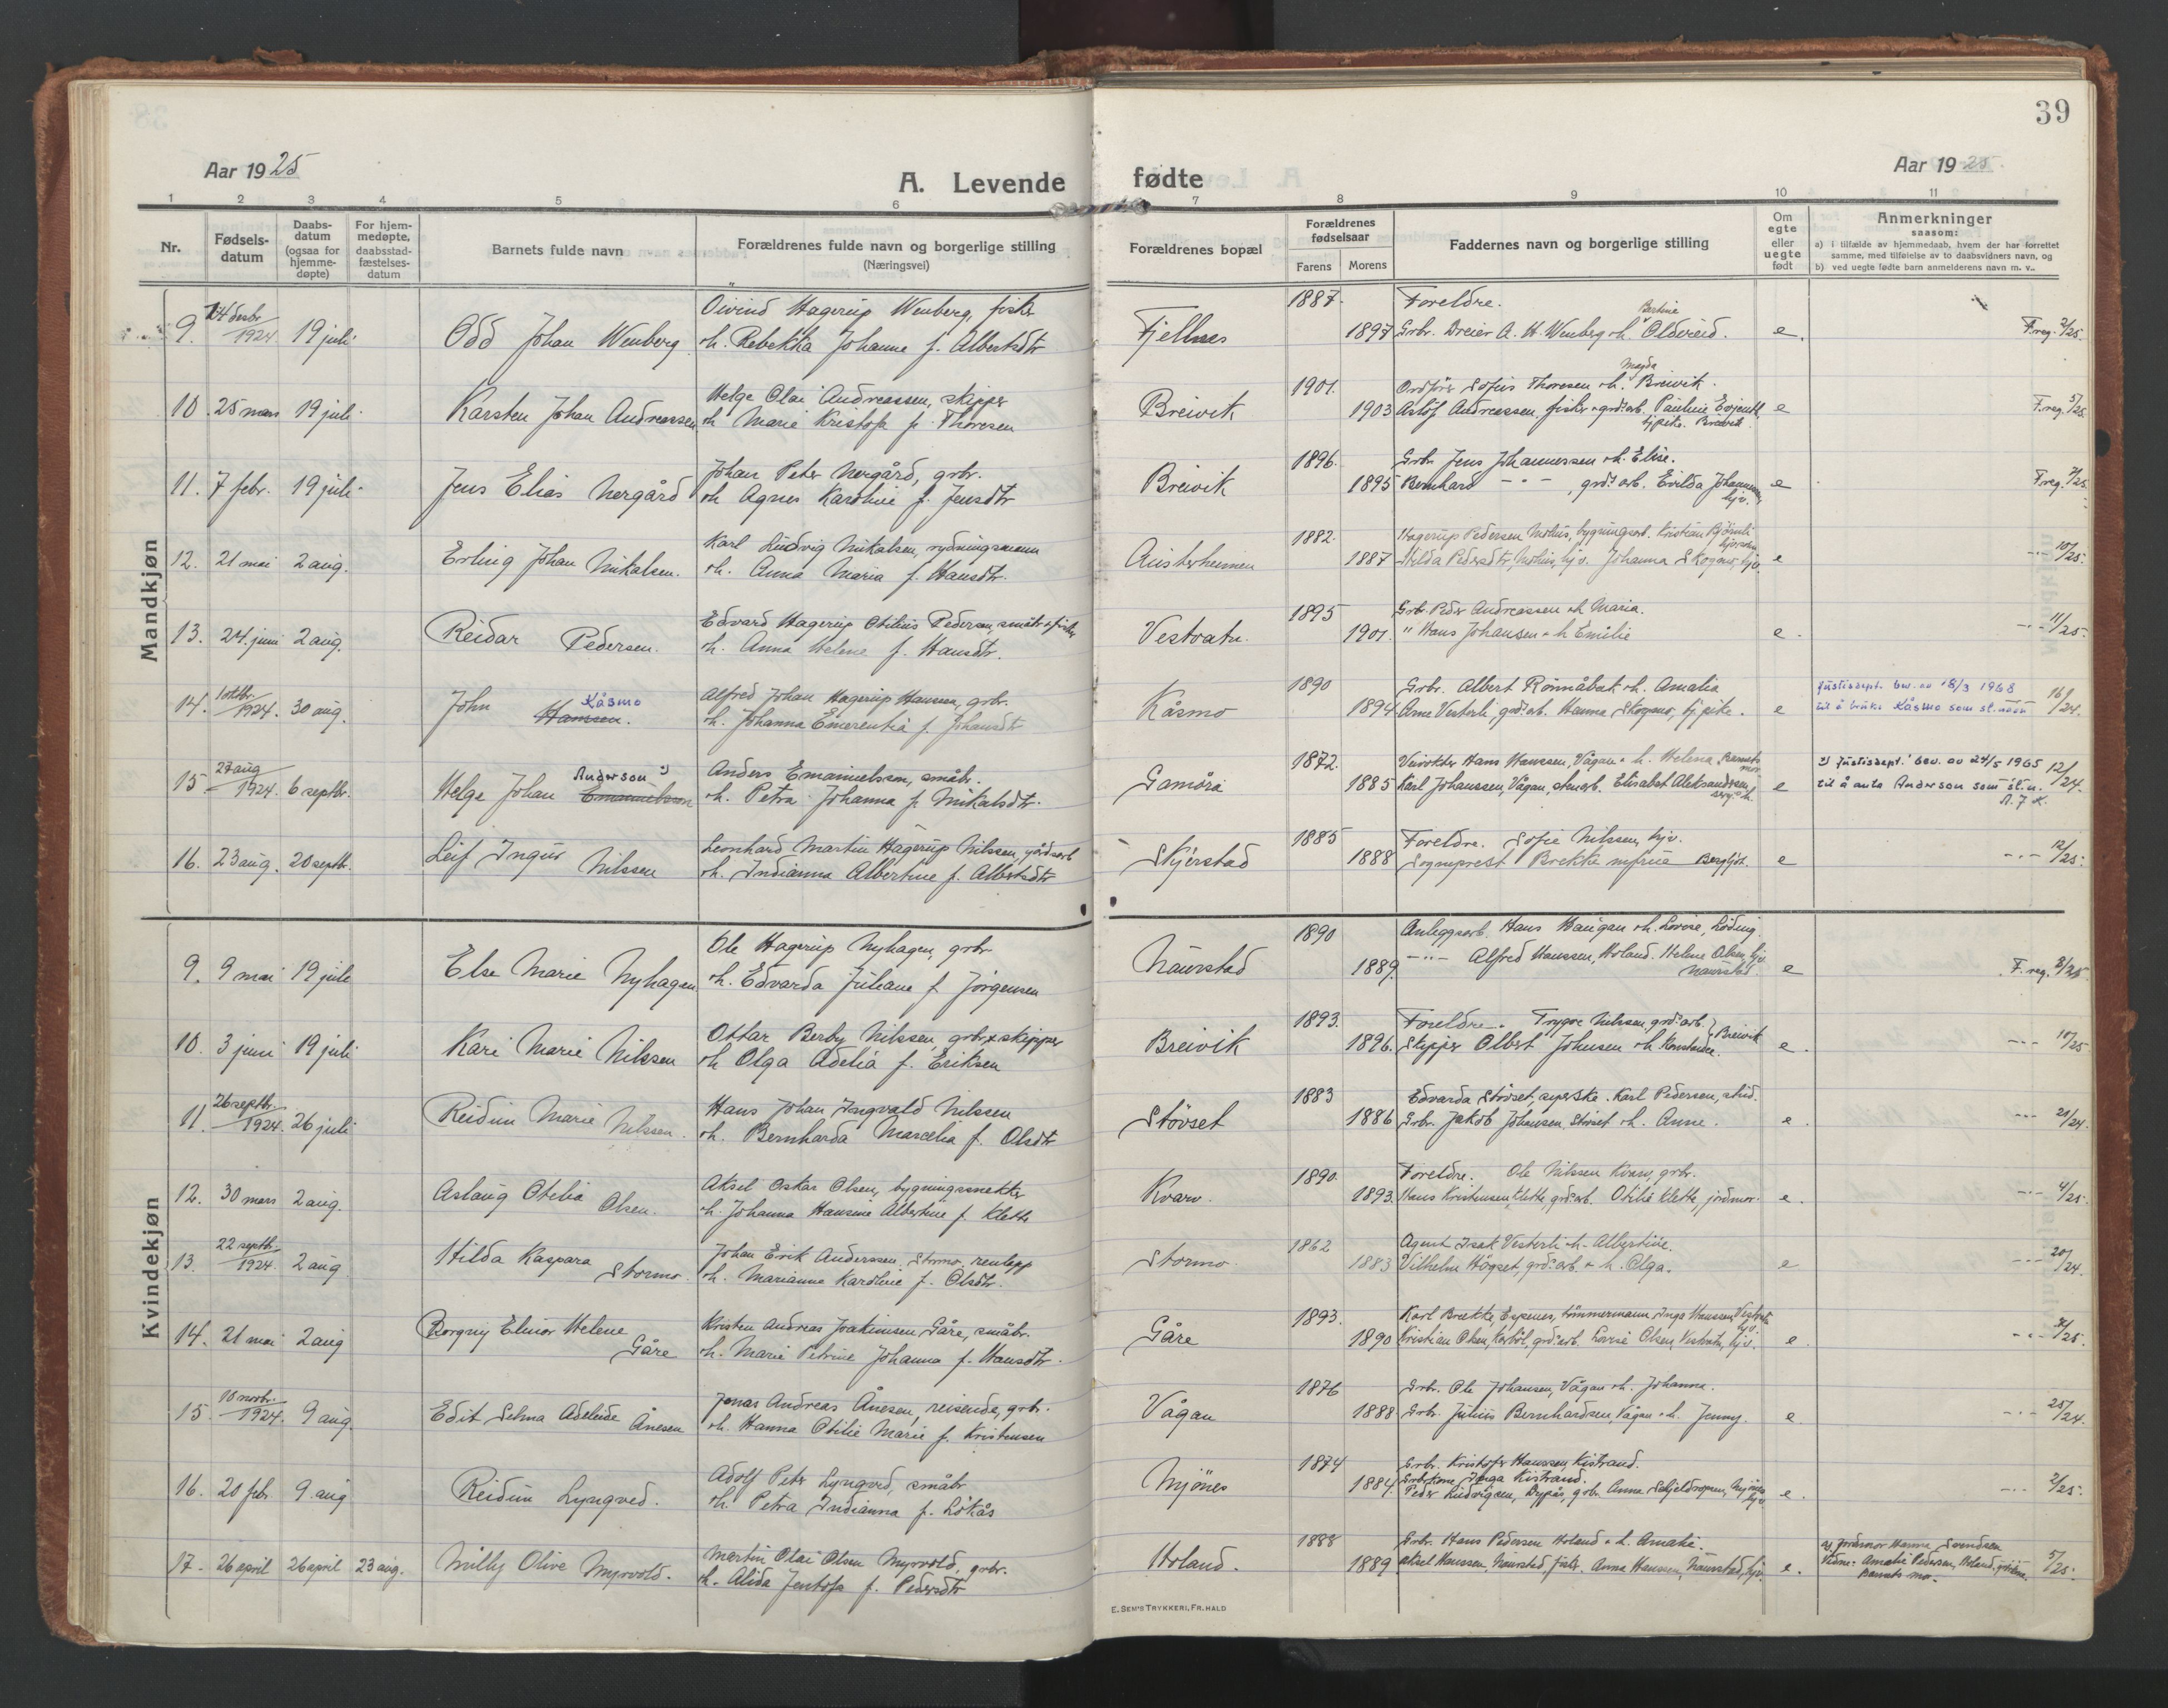 39
Aar 1925
A. Levende fødte
Aar 1925
1 2 3 4 5 6 7 8 9 10 11
Nr.
Fødsels-
datum
Daabs-
datum
(ogsaa for
hjemme-
døpte)
For hjem-
medøpte,
daabsstad-
fæstelses-
datum
Barnets fulde navn
Forældrenes fulde navn og borgerlige stilling
(Næringsvei)
Forældrenes bopæl
Forældrenes
fødselsaar
Farens Morens
Faddernes navn og borgerlige stilling
Om
egte
eller
uegte
født
Anmerkninger
saasom:
a) i tilfælde av hjemmedaab, hvem der har forrettet
samme, med tilføielse av to daabsvidners navn, og
b) ved uegte fødte barn anmelderens navn m. v..
Mandkjøn
9. 24 desbr. 1924 19 juli Odd Johan Wenberg
Öivind Hagerup Wenberg, fisker
oh. Rebekka Johanne f. Albertsdtr
Fjellnes 1887 1897
Foreldre.
Grbr. Dreier A. H. Wenberg oh. Bertine Oldereid. e. F.reg. 2/25.
10. 25 mars 19 juli Karsten Johan Andreassen
Helge Olai Andreassen, skipper
oh Marie Kristofa f. Thoresen
Breivik 1901. 1903
Ordfører Sofus Thoresen oh. Magda Breivik.
Astöf Andreassen, fisker, grds.arb. Pauline Evjenth, tj.pike. Breivik. e F.reg. 5/25.
11. 7 febr. 19 juli Jens Elias Nergård
Johan Peter Nergård, grbr.
oh Agnes Karoline f. Jensdtr
Breivik 1896. 1895
Grbr. Jens Johannessen oh. Elise.
Bernhard - " - grds arb. Evilda Johannessen, hjv. e F.reg. 7/25.
12. 21 mai 2 aug. Erling Johan Mikalsen.
Karl Ludvig Mikalsen, rydningsmann
oh. Anna Maria f. Hansdtr.
Austerheimen 1882. 1887
Hagerup Pedersen Mohus, bygningsarb. Kristian
Hilda Pedersdtr, Mohus, hjv. Johanna Skogmo, hjv. e -"- 10/25.
13. 24. juni 2 aug. Reidar Pedersen.
Edvard Hagerup Otilius Pedersen, småbr. & fisker
oh. Anna Helene f. Hansdtr.
Vestvatn. 1895 1901.
Grb. Peder Andreassen oh Maria.
" Hans Johansen oh Emilie e. -"- 11/25.
14. 1 oktbr. 1924. 30 aug. John Hansen. Kåsmo
Alfred Johan Hagerup Hansen, grbr.
oh. Johanna Emerentia f. Johansdtr
Kåsmo 1890 1894
Grbr. Albert Rönnåbak oh. Amalia
Arne Vesterli, grds.arb. Hanna Skogmo, tj.pike. e
Justisdept. bev. av 18/3 1968
til å bruke Kåsmo som st.navn 16/24.
15. 27 aug 1924. 6 septbr. Helge Johan Emanuelsen Anderson 2)
Anders Emanuelsen, småbr.
oh. Petra Johanna f. Mikalsdtr.
Gamöra 1872. 1885
Veivokter Hans Hanssen, Vågan oh. Helena, Barnets mor
Karl Johanssen, Vågan, stenarb. Elisabet Aleksandersen, e
2) Justisdept.s bev. av 24/5 1965
til å anta Anderson som st.n. 12/24.
16. 23 aug. 20 septbr. Leif Ingur Nilssen
Leonhard Martin Hagerup Nilssen, gårdsarb
oh. Indianna Albertine f. Albertsdtr
Skjerstad 1885 1888
Foreldre. Sofie Nilssen, hjv.
Sogneprest Brekke m/frue Bergljot. e -"- 12/25.
Kvindekjøn
9. 9 mai 19 juli Else Marie Nyhagen
Ole Hagerup Nyhagen, grbr
oh. Edvarda Juliane f. Jörgensen
Naurstad 1890 1889.
Anleggsarb. Hans Haugan oh. Lovise, Löding.
-"- Alfred Hanssen, Holand. Helene Olsen, hjv. Naurstad. e F. reg. 8/25.
10. 3 juni 19 juli Kari Marie Nilssen
Ottar Berby Nilssen, grbr. & skipper
oh Olga Adelia f. Eriksen
Breivik 1893. 1896.
Foreldre. Trygve Nilssen, grds.arb.
Skipper Albert Johnsen oh Konstanse. Breivik e. -"- 10/25
11. 26 septbr. 1924. 26 juli Reidun Marie Nilssen.
Hans Johan Ingvald Nilssen
oh. Bernharda Marcelia f. Olsdtr
Stövset 1883 1886
Edvarda Stövset, syerske. Karl Pedersen, stud.
Grbr. Jakob Johansen, Stövset oh. Anne. e. -"- 21/24.
12. 30 mars 2 aug. Aslaug Otelia Olsen.
Aksel Oskar Olsen, bygningssnekker
oh. Johanna Hansine Albertine f. Klette
Kvarv. 1890. 1893.
Foreldre. Ole Nilssen Kvarv, grbr.
Hans Kristensen Klette, grds.arb. Otilie Klette, jordmor. e. -"- 4/25.
13. 22 septbr. 1924. 2 aug. Hilda Kaspara Stormo.
Johan Erik Anderssen Stormo, renlapp
oh. Marianne Karoline f. Olsdtr.
Stormo. 1862 1883
Agent Isak Vesterli oh. Albertine.
Vilhelm Högset, grds.arb. oh. Olga. e -"- 20/24.
14. 21 mai 2 aug Borgny Elinor Helene Gåre
Kristen Andreas Joakimsen Gåre, småbr.
oh. Marie Petrine Johanna f. Hansdtr.
Gåre 1893. 1890
Karl Brekke, Espenes, tömmermann, Inga Hanssen, Vestvatn, hjv.
Kristian Olsen, grds.arb. Lovise Olsen, Vestvatn, hjv. e. -"-
15. 10 novbr. 1924. 9 aug. Edit Selma Adeleide Ånesen
Jonas Andreas Ånesen, reisende, grbr.
oh. Hanna Otilie Marie f. Kristensen
Vågan 1876 1888
Grbr. Ole Johansen, Vågan oh. Johanna.
Grbr. Julius Bernhardsen Vågan oh. Jenny. e. -"- 25/24.
16. 20 febr. 9 aug Reidun Lyngved.
Adolf Peter Lyngved, småbr
oh. Petra Indianna f. Lökås
Mjönes 1874 1884
Grbr. Kristofer Hanssen, Kistrand.
Grbr.kone Inga Kistrand.
Peder Ludvigsen, Dypås, grbr. Anna Skjeldropen, Mjönes, hjv. e. -"- 2/25.
17. 26 april 26 april 23 aug. Milly Olive Myrvold.
Martin Olai Olsen Myrvold, grbr.
oh. Alida Jentofa f. Pedersdtr
Holand. 1888 1889
Grbr. Hans Pedersen Holand oh. Amalie.
Aksel Hanssen, Naurstad, fisker. Anna Hanssen, Naurstad, hjv. e.
a) Jordmor Hanna Svendsen
Vidne: Amalie Pedersen, Holand,
Barnets mor. 5/25.
E. SEM'S TRYKKERI, FR. HALD